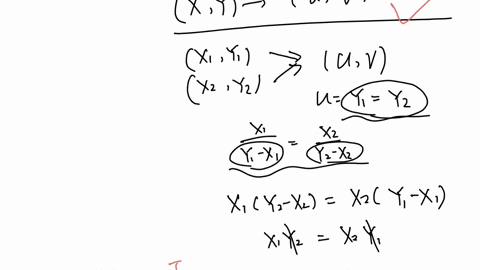 (X,Y) → (U,V)
(X1, Y1) → (U,V)
(X2, Y2)
U= Y1 = Y2
X1/(Y1-X1) = X2/(Y2-X2)
X1(Y2-X2) = X2(Y1-X1)
X1Y2 = X2Y1